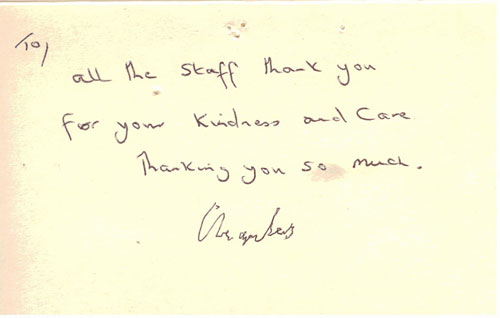 To,
all the staff thank you
for your Kindness and Care
Thanking you so much.